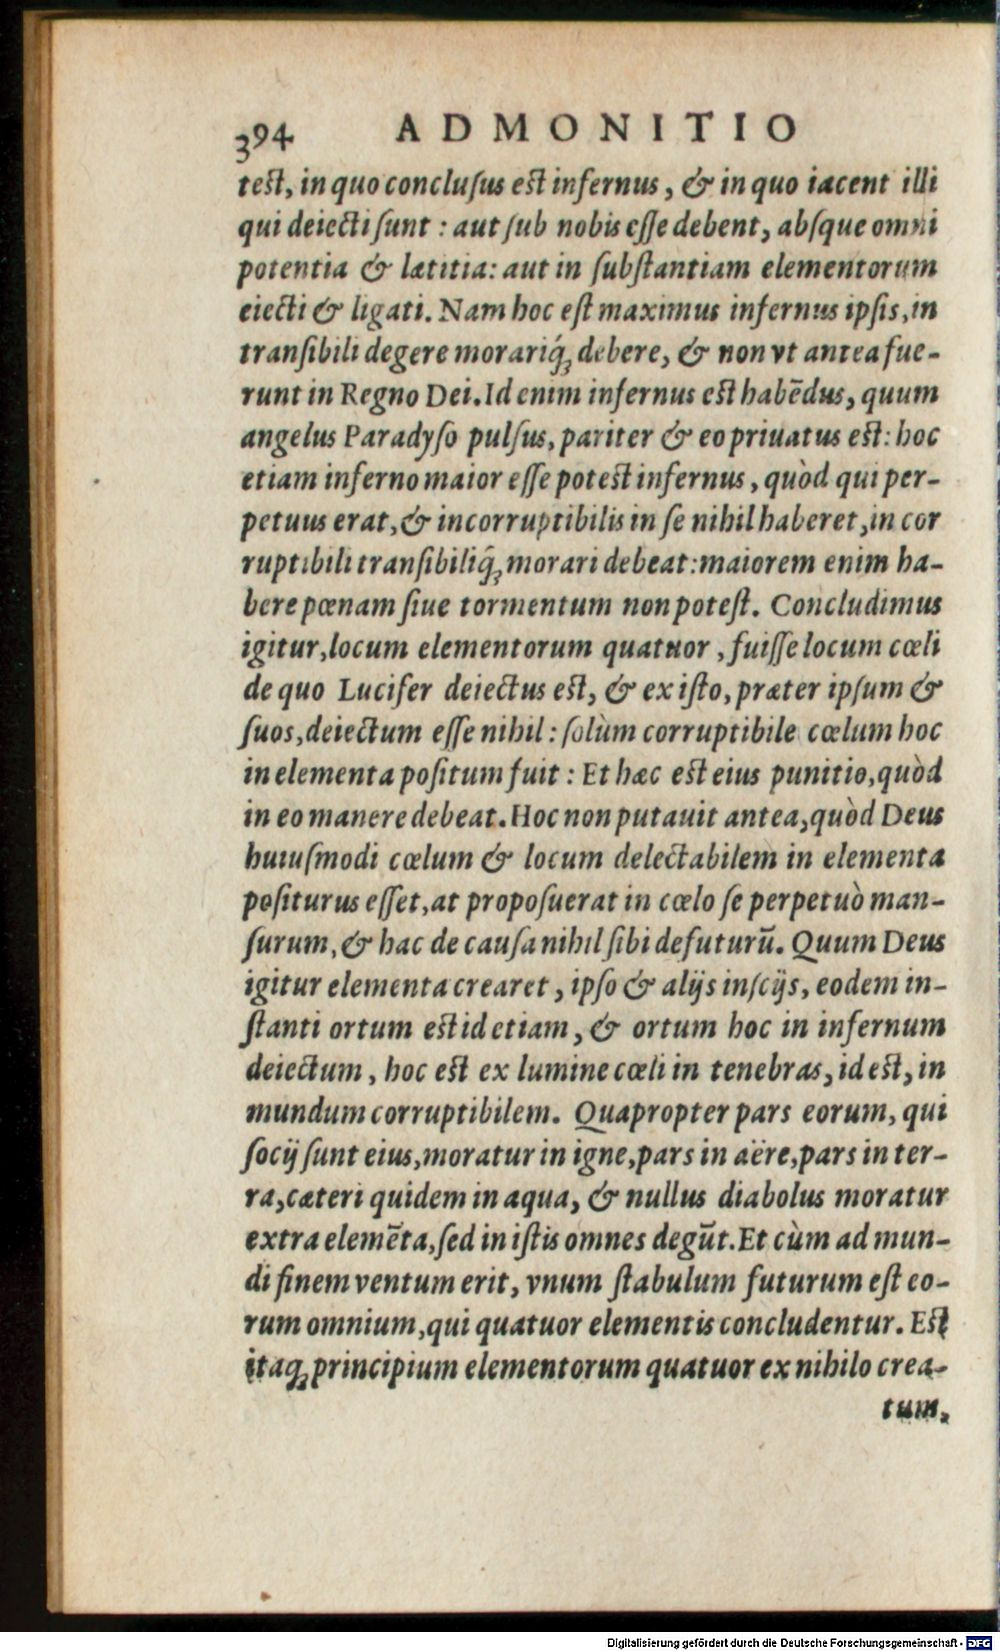 394 ADMONITIO
test, in quo conclusus est infernus, & in quo iacent illi
qui deiecti sunt : aut sub nobis esse debent, absque omni
potentia & lætitia: aut in substantiam elementorum
eiecti & ligati. Nam hoc est maximus infernus ipsis, in
transibili degere morariq́ꝫ debere, & non vt antea fue-
runt in Regno Dei. Id enim infernus est habēdus, quum
angelus Paradyso pulsus, pariter & eo priuatus est: hoc
etiam inferno maior esse potest infernus, quòd qui per-
petuus erat, & incorruptibilis in se nihil haberet, in cor
ruptibili transibiliq́ꝫ morari debeat: maiorem enim ha-
bere pœnam siue tormentum non potest. Concludimus
igitur, locum elementorum quatuor, fuisse locum cœli
de quo Lucifer deiectus est, & ex isto, præter ipsum &
suos, deiectum esse nihil: solùm corruptibile cœlum hoc
in elementa positum fuit : Et hæc est eius punitio, quòd
in eo manere debeat. Hoc non putauit antea, quòd Deus
huiusmodi cœlum & locum delectabilem in elementa
positurus esset, at proposuerat in cœlo se perpetuò man-
surum, & hac de causa nihil sibi defuturū. Quum Deus
igitur elementa crearet, ipso & alijs inscijs, eodem in-
stanti ortum est id etiam, & ortum hoc in infernum
deiectum, hoc est ex lumine cœli in tenebras, id est, in
mundum corruptibilem. Quapropter pars eorum, qui
socij sunt eius, moratur in igne, pars in aëre, pars in ter-
ra, cæteri quidem in aqua, & nullus diabolus moratur
extra elemēta, sed in istis omnes degūt. Et cùm ad mun-
di finem ventum erit, vnum stabulum futurum est eo-
rum omnium, qui quatuor elementis concludentur. Est
itaqꝫ principium elementorum quatuor ex nihilo crea-
tum.
Digitalisierung gefördert durch die Deutsche Forschungsgemeinschaft - DFG